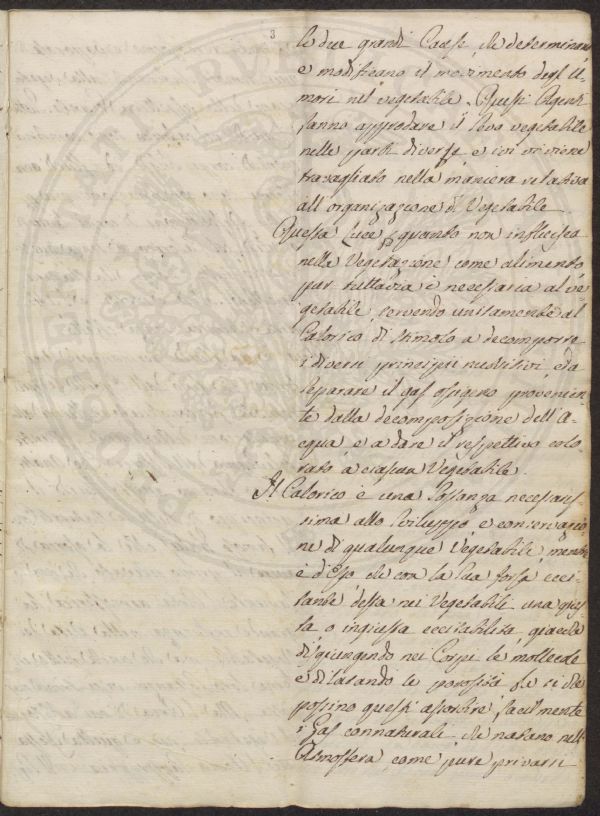 3
le due grandi Cause, che determinano
e modificano il movimento degl' U-
mori nel vegetabile. Questi Agenti
fanno approdare il sevo vegetabile
nelle parti diverse e ivi vi viene
travagliato nella maniera relativa
all' organizazione di Vegetabile.
Questa Luce quanto non influisca
nella Vegetazione come alimento,
pur tuttavia è necessaria al ve-
getabile, servendo unitamente al
Calorico di stimolo a decomporre
i diversi principii nutritivi, e da
separare il gas ossigeno provenien-
te dalla decomposizione dell' A-
cqua e a dare il respettivo colo-
rato a ciascun Vegetabile.
Il Calorico è una Sostanza necessaris-
sima allo sviluppo, e conservazio-
ne di qualunque Vegetabile, mentre
è d'Esso che con la sua forza ecci-
tante desta nei Vegetabili una giu-
sta o ingiusta eccitabilità giacchè
disgiungendo nei Corpi le mollecole
e dilatando le porosità fa sì che
possino questi assorbire facilmente
i Gas connaturali che natano nell'
Atmosfera, come pure privarsi